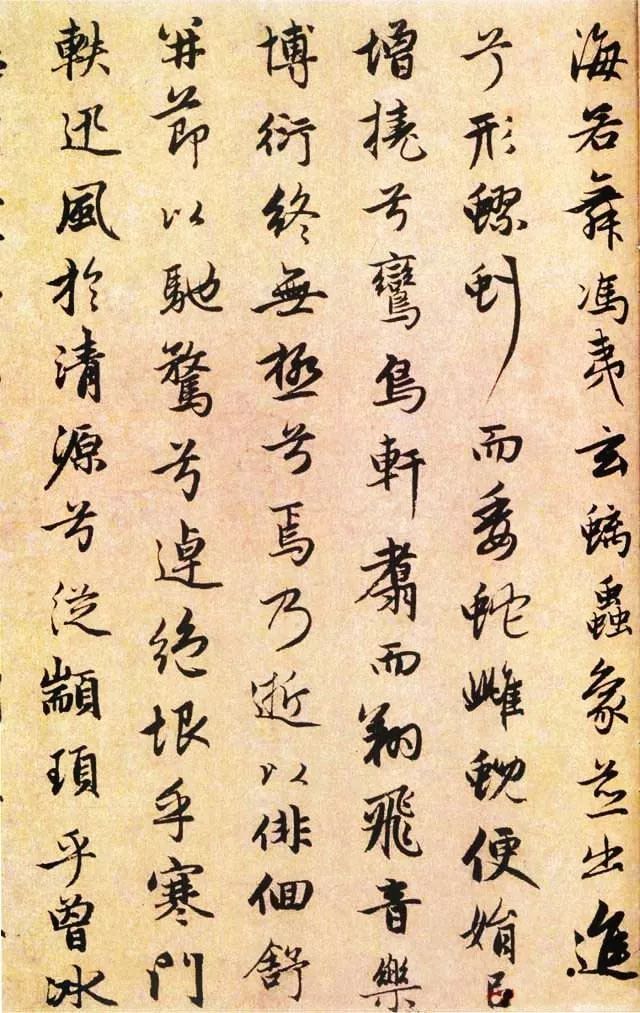 海若舞馮夷玄螭蟲象並出進
兮形蟉虯而委蛇雌蜺便娟㠯
增撓兮鸞鳥軒翥而翔飛音樂
博衍終無極兮焉乃逝以俳佪舒
并節以馳騖兮逴絕垠乎寒門
軼迅風於清源兮從顓頊乎曾冰